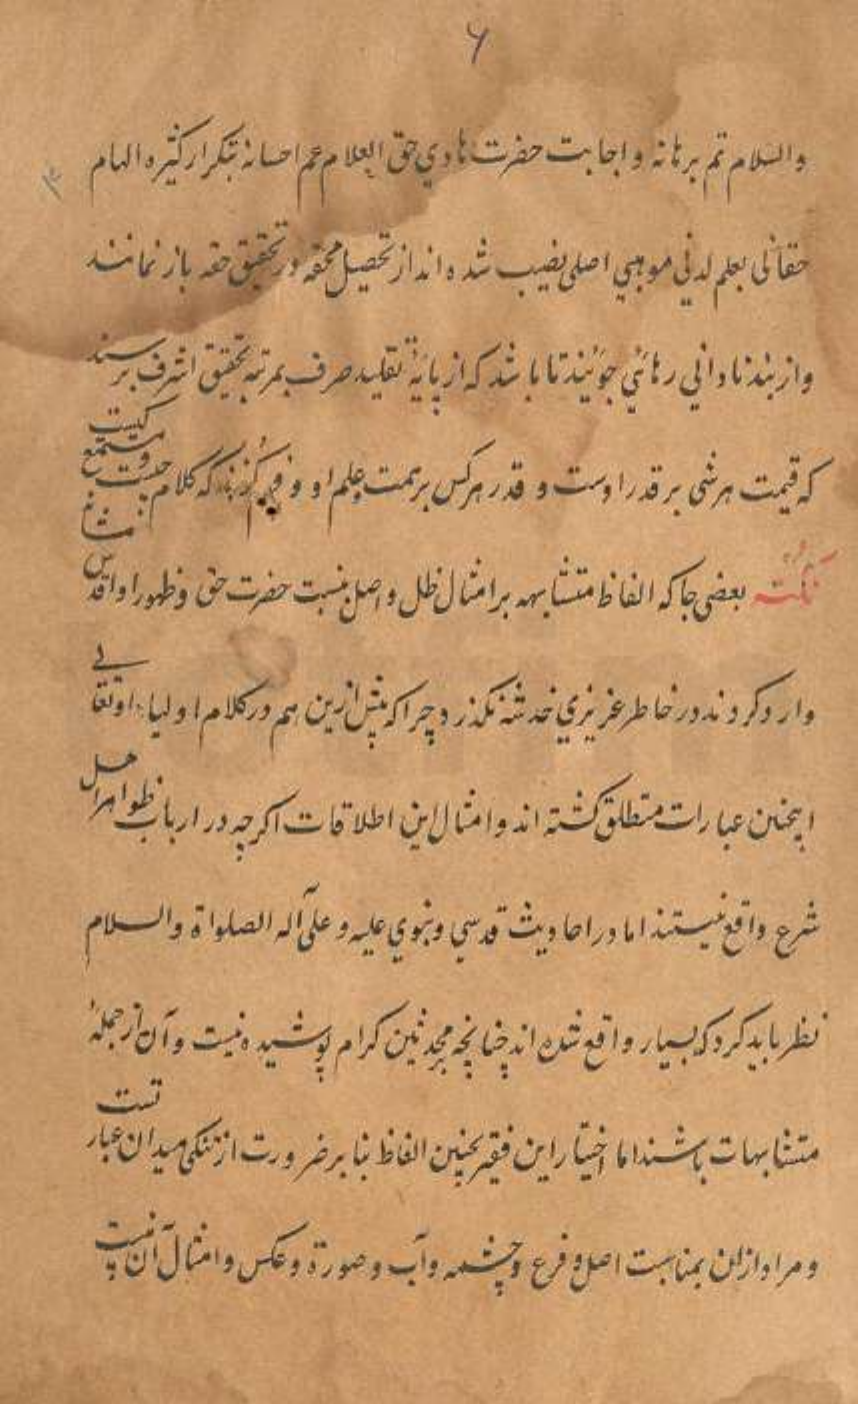 ۶
والسلام تم برهانه و اجابت حضرت هادي حق العلام عم احسانه بتكرار كثيره الهام
حقاني بعلم لدني موهبي اصلي نصيب شده اند از تحصيل محقه در تحقيق حقه باز نمانند
و از بند ناداني رهائي جويند تا باشد كه از پايۀ تقليد صرف بمرتبه تحقيق اشرف برسند
كه قيمت هر شي بر قدر اوست و قدر هر كس بر همت و علم او و كه كلام چيست و مستمع كيست
نكته بعضي جا كه الفاظ متشابهه بر امثال ظل و اصل بنسبت حضرت حق و ظهور او اقدس
وارد كردند در خاطر عزيزي خدشه نگذرد چرا كه پيش ازين هم در كلام اولياء او تعالي
اينچنين عبارات متطلق گشته اند و امثال اين اطلاقات اگرچه در ارباب ظواهر اهل
شرع واقع نيستند اما در احاديث قدسي و نبوي عليه و علي آله الصلواة والسلام
نظر بايد كرد كه بسيار واقع شده اند چنانچه بر محدثين كرام پوشيده نيست و آن از جملۀ
متشابهات باشند اما اختيار اين فقير بچنين الفاظ بنا بر ضرورت از تنگي ميدان عبارتست
و مراد ازان بمناسبت اصل و فرع و چشمه و آب و صورة و عكس و امثال آن نيست